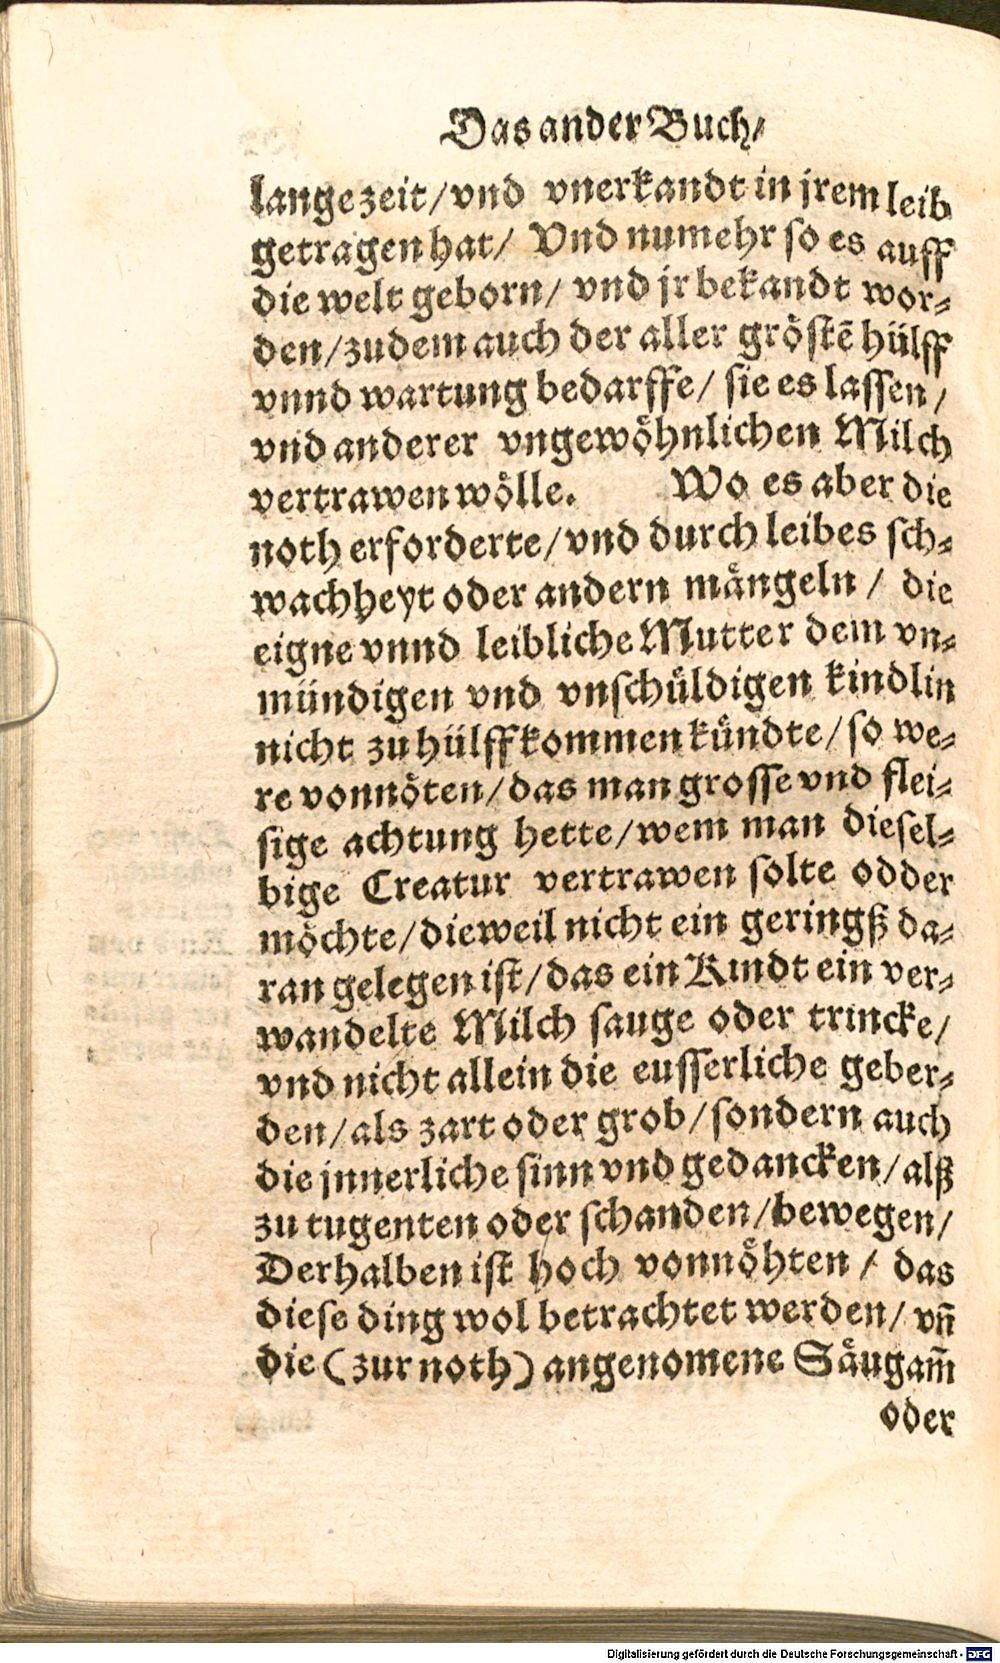 Das ander Buch⸗
lange zeit/vnd vnerkandt in jrem leib
getragen hat/ Vnd numehr so es auff
die welt geborn/ vnd jr bekandt wor⸗
den/zudem auch der aller gröstē hülff
vnnd wartung bedarffe/ sie es lassen/
vnd anderer vngewöhnlichen Milch
vertrawen wölle. Wo es aber die
noth erforderte/vnd durch leibes sch⸗
wachheyt oder andern mängeln/ die
eigne vnnd leibliche Mutter dem vn⸗
mündigen vnd vnschüldigen kindlin
nicht zu hülff kommen kündte/so we⸗
re vonnöten/das man grosse vnd flei⸗
sige achtung hette/wem man diesel⸗
bige Creatur vertrawen solte odder
möchte/dieweil nicht ein geringß da⸗
ran gelegen ist/das ein Kindt ein ver⸗
wandelte Milch sauge oder trincke/
vnd nicht allein die eusserliche geber⸗
den/als zart oder grob/sondern auch
die jnnerliche sinn vnd gedancken/alß
zu tugenten oder schanden/bewegen/
Derhalben ist hoch vonnöhten/ das
diese ding wol betrachtet werden/ vn̄
die (zur noth) angenomene Säugam̄
oder
Digitalisierung gefördert durch die Deutsche Forschungsgemeinschaft - DFG